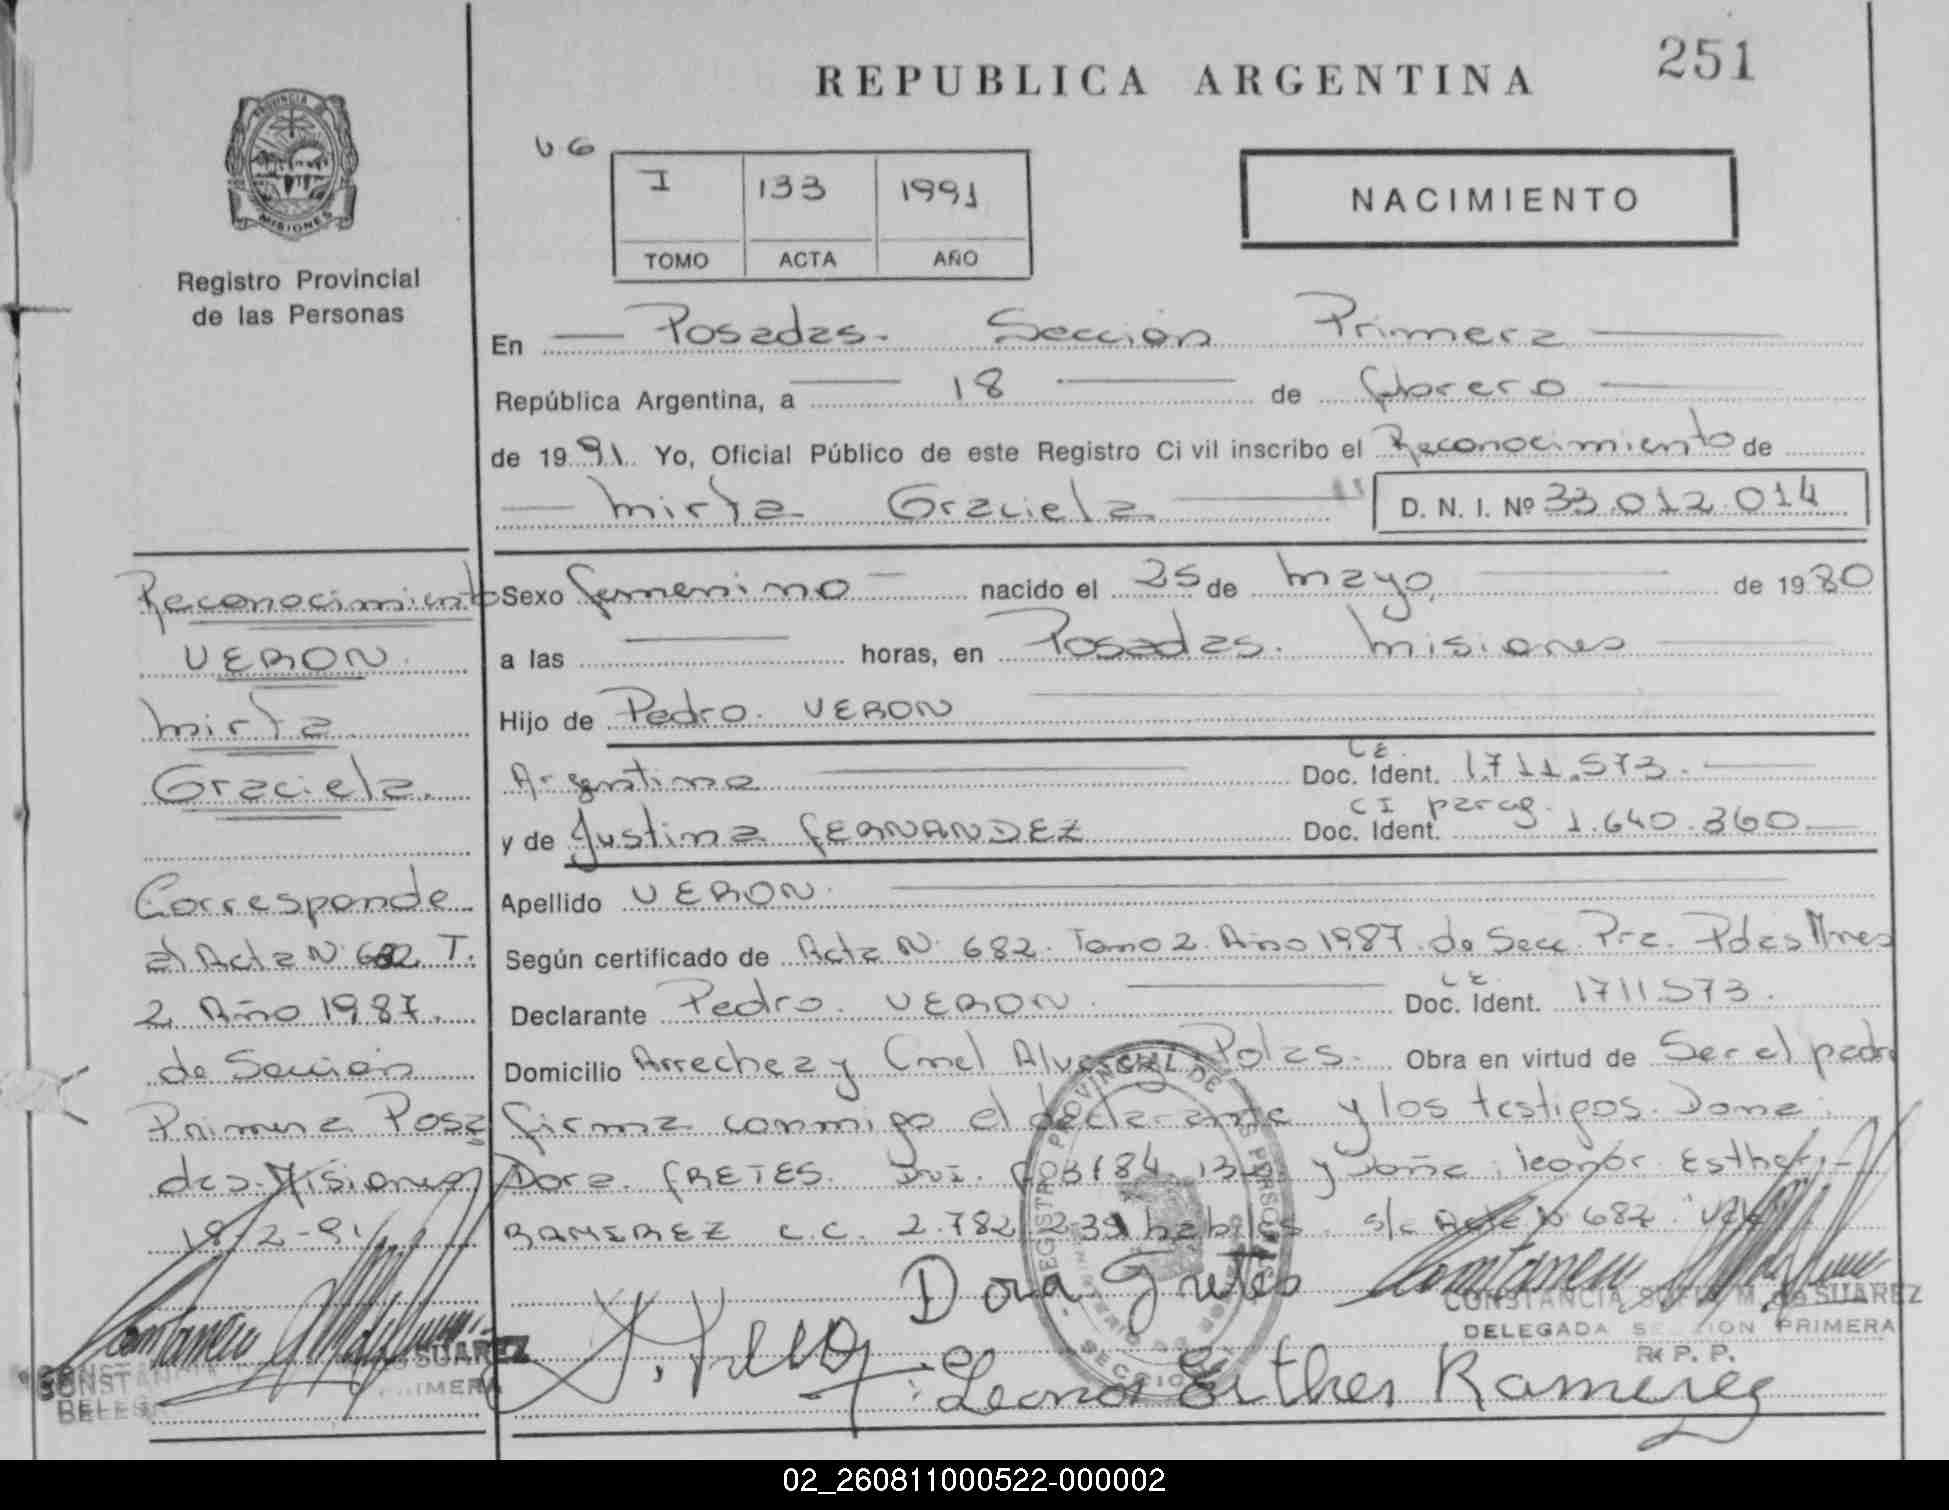 REPUBLICA ARGENTINA
251
PROVINCIA DE
MISIONES
Registro Provincial
de las Personas
I 133 1991
TOMO ACTA AÑO
NACIMIENTO
En Posadas. Sección Primera
República Argentina, a 18 de febrero
de 1991. Yo, Oficial Público de este Registro Civil inscribo el Reconocimiento de
Mirta Graciela
D. N. I. Nº 33.012.014
Reconocimiento
VERON.
Mirta
Graciela.
Corresponde
al Acta Nº 682 T.
2 Año 1987.
de Sección
Primera Posa
das-Misiones
18-2-91
Sexo femenino nacido el 25 de Mayo, de 1980
a las horas, en Posadas. Misiones
Hijo de Pedro. VERON
Argentina L E. Doc. Ident. 1.711.573.
y de Justina FERNANDEZ C I parag. Doc. Ident. 1.640.360
Apellido VERON.
Según certificado de Acta Nº 682. Tomo 2. Año 1987. de Secc. Pra. Pdas Mnes
Declarante Pedro. VERON. L E. Doc. Ident. 1711.573.
Domicilio Arrechea y Cnel Alvarez Pdas. Obra en virtud de Ser el padre
firma conmigo el declarante y los testigos. Doña
Dora. FRETES. DNI. y Doña: Leonor. Esther
RAMIREZ C.C. 2.782 habiles. s/c Acta Nº 682. "Vale"
Dora Fretes
Leonor Esther Ramirez
CONSTANCIA SOFIA M. de SUAREZ
DELEGADA SECCION PRIMERA
R. P. P.
REGISTRO PROVINCIAL DE LAS PERSONAS
02_260811000522-000002